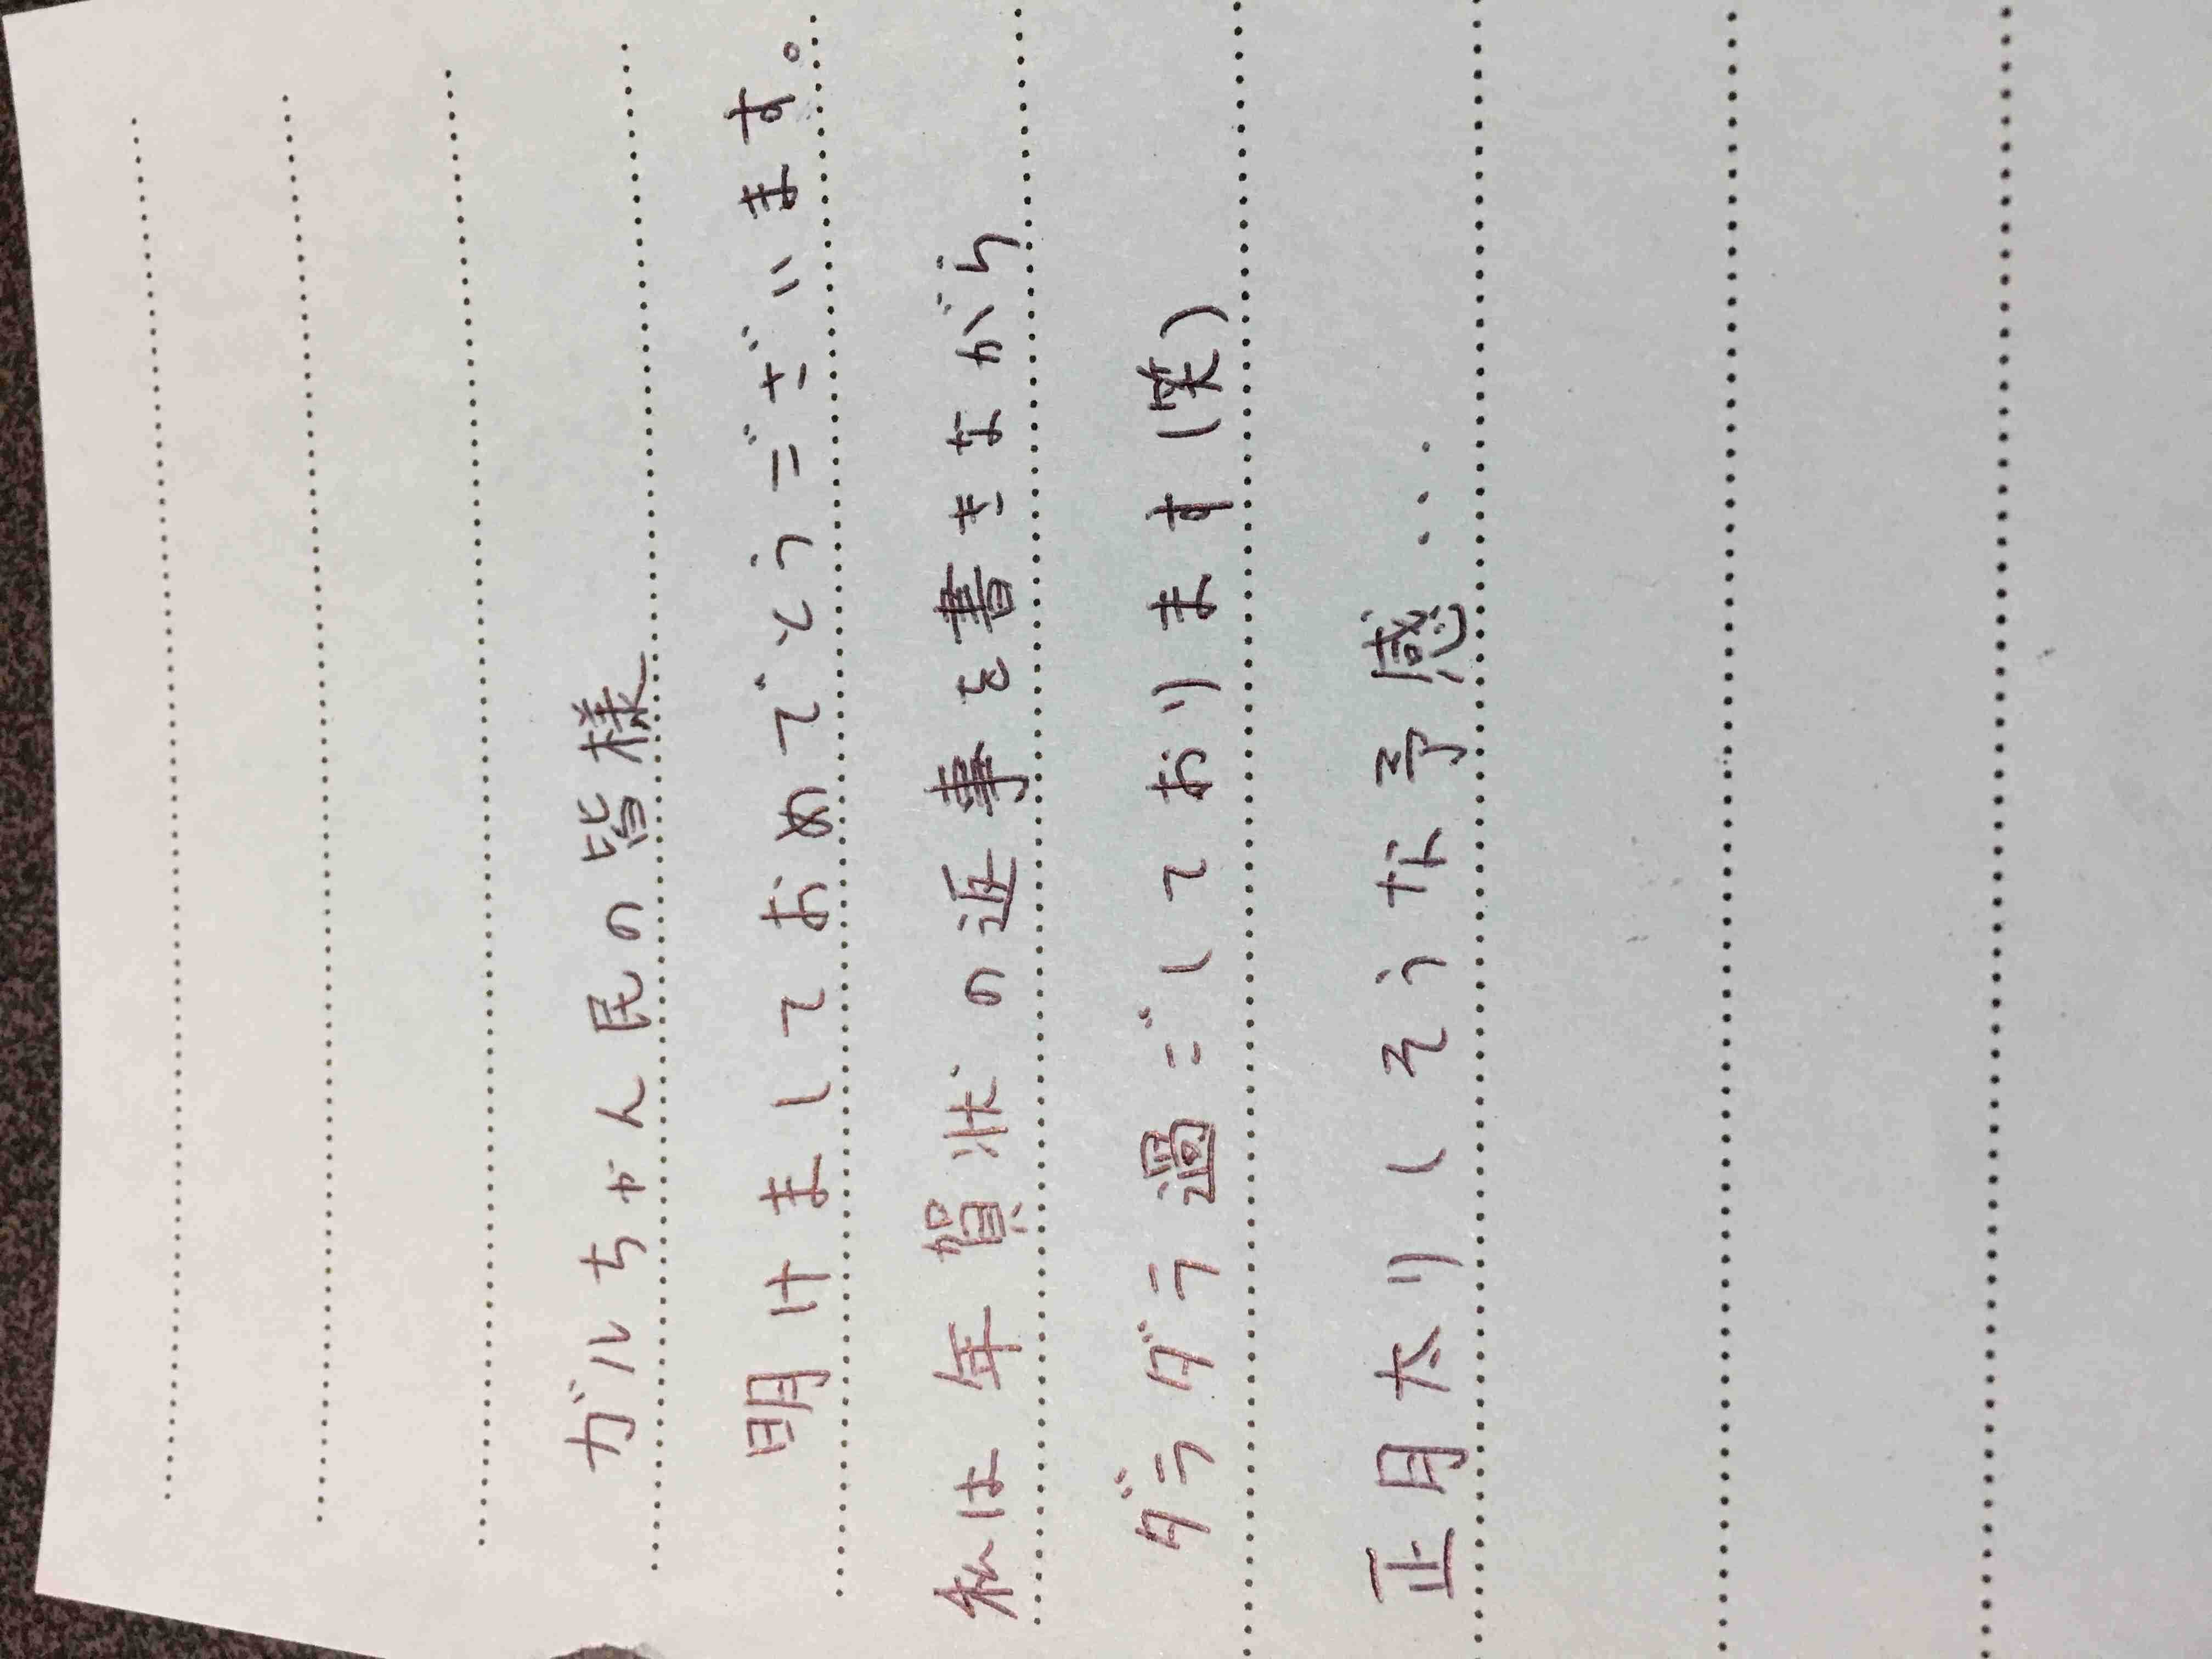 ガルちゃん民の皆様
明けましておめでとうございます。
私は年賀状の返事を書きながら
ダラダラ過ごしております(笑)
正月太りしそうな予感...